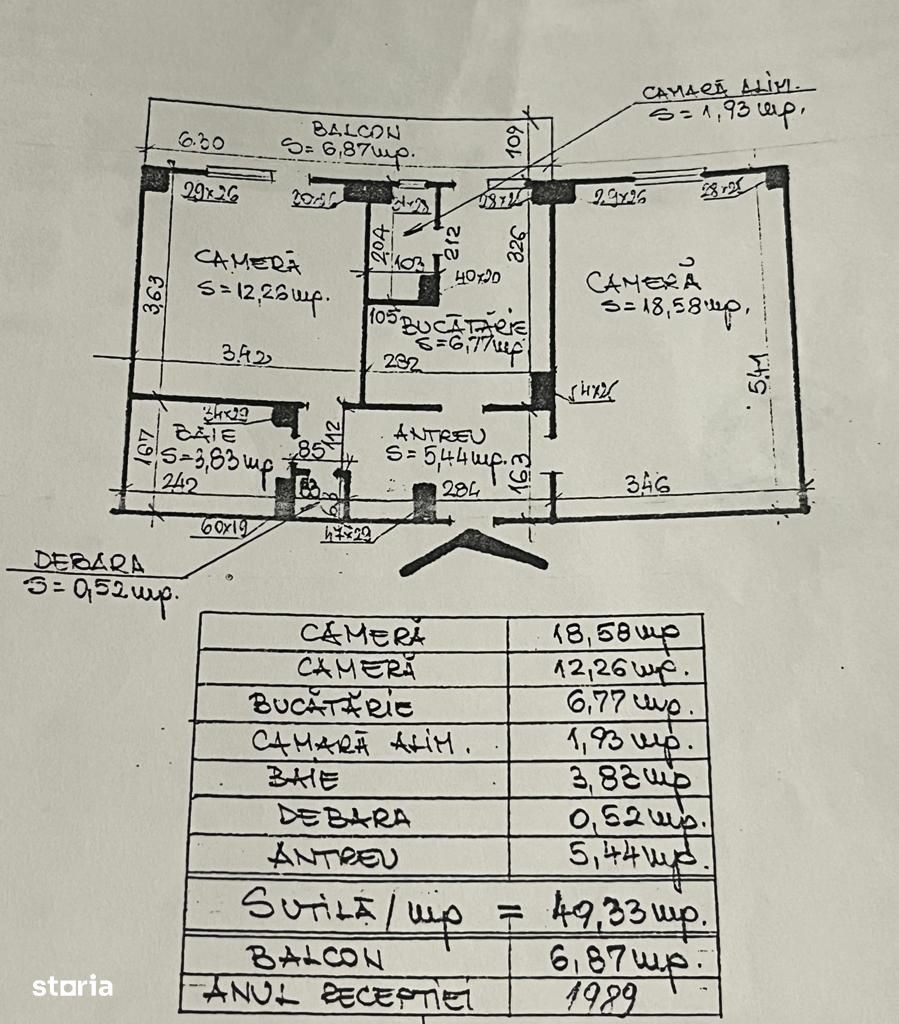 CAMARĂ ALIM.
S=1,93mp.
BALCON
S=6,87mp.
6.30
109
29x26
28x26
29x26
28x26
CAMERĂ
S=12,26mp.
3,63
3,42
204
103
212
326
40x20
105
BUCĂTĂRIE
S=6,77mp
282
CAMERĂ
S=18,58mp.
5,41
346
34x29
BAIE
S=3,83mp
167
242
85
112
ANTREU
S=5,44mp.
163
284
60x19
47x29
DEBARA
S=0,52mp.
CAMERĂ 18,58mp
CAMERĂ 12,26mp.
BUCĂTĂRIE 6,77mp.
CAMARĂ ALIM. 1,93mp.
BAIE 3,83mp
DEBARA 0,52mp.
ANTREU 5,44mp.
SUTILĂ/mp = 49,33mp.
BALCON 6,87mp.
ANUL RECEPTIEI 1989
storia